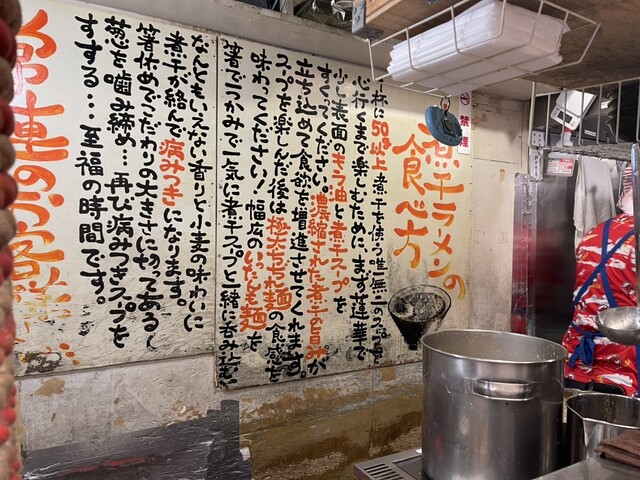 煮干ラーメンの
食べ方
禁煙
一杯に50g以上煮干を使う唯一無二のスープを
心行くまで楽しむために、まず蓮華で
少し表面のキラ油と煮干スープを
すくってください。濃縮された煮干の旨みが
立ち込めて食欲を増進させてくれます。
スープを楽しんだ後は極太ちぢれ麺の食感を
味わってください！幅広のいったん麺を
箸でつかみで一気に煮干スープと一緒に呑み込む
なんともいえない香りと小麦の味わいに
煮干が絡んで病みつきになります。
箸休めでこだわりの大きさに切ってある〜
葱を噛み締め…再び病みつきスープを
すする…至福の時間です。